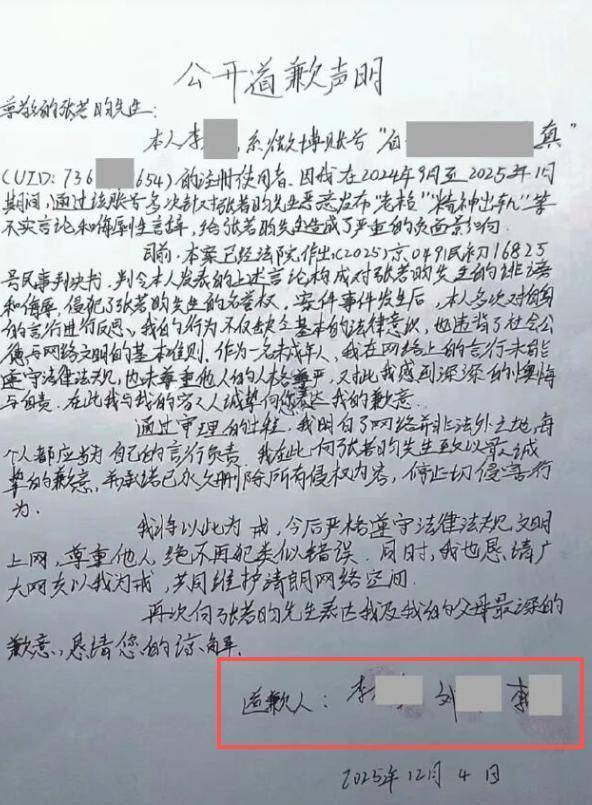 公开道歉声明
尊敬的张若昀先生：
本人李 系微博账号“白 真”
(UID：736 654)的注册使用者。因我在2024年9月至2025年1月
期间，通过该账号多次针对张若昀先生恶意发布“老栓”“精神出轨”等
不实言论和侮辱性言辞，给张若昀先生造成了严重的负面影响。
目前，本案已经法院作出(2025)京0491民初16825
号民事判决书，判令本人发表的上述言论构成对张若昀先生的诽谤
和侮辱，侵犯了张若昀先生的名誉权。案件事件发生后，本人多次对自身
的言行进行反思，我的行为不仅缺乏基本的法律意识，也违背了社会公
德与网络文明的基本准则。作为一名未成年人，我在网络上的言行未能
遵守法律法规，也未尊重他人的人格尊严，对此我感到深深的懊悔
与自责。在此我与我的家人诚挚向您表达我的歉意。
通过审理的过程，我明白了网络并非法外之地，每
个人都应当为自己的言行负责。我在此向张若昀先生致以最诚
挚的歉意，并承诺已永久删除所有侵权内容，停止一切侵害行
为。
我将以此为戒，今后严格遵守法律法规，文明
上网，尊重他人，绝不再犯类似错误。同时，我也恳请广
大网友以我为戒，共同维护清朗网络空间。
再次向张若昀先生表达我及我的父母最深的
歉意，恳请您的谅解。
道歉人：李 刘 李
2025年12月4日